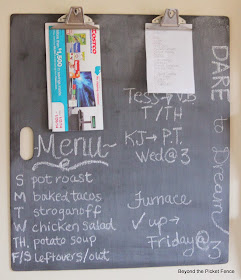 COSTCO
DARE to Dream!
Menu
S pot roast
M baked tacos
T stroganoff
W chicken salad
TH. potato soup
F/S leftovers/out
T/TH
KJ → P.T.
Wed@3
Furnace
✓ up →
Friday@3
Beyond the Picket Fence